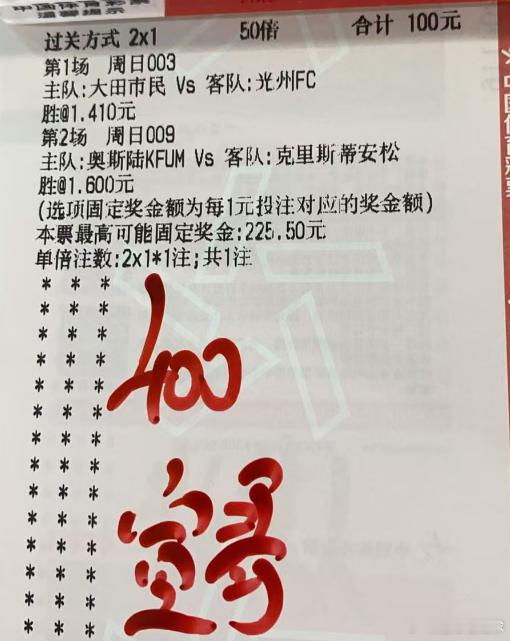 中国体育彩票
温馨提示
过关方式 2x1 50倍 合计 100元
第1场 周日003
主队:大田市民 Vs 客队:光州FC
胜@1.410元
第2场 周日009
主队:奥斯陆KFUM Vs 客队:克里斯蒂安松
胜@1.600元
(选项固定奖金额为每1元投注对应的奖金额)
本票最高可能固定奖金:225.50元
单倍注数:2x1*1注;共1注
* * *
* * *
* * *
* * *
* * *
* * *
* * *
* * *
* * *
* * *
* * *
* * *
* * *
* * *
400